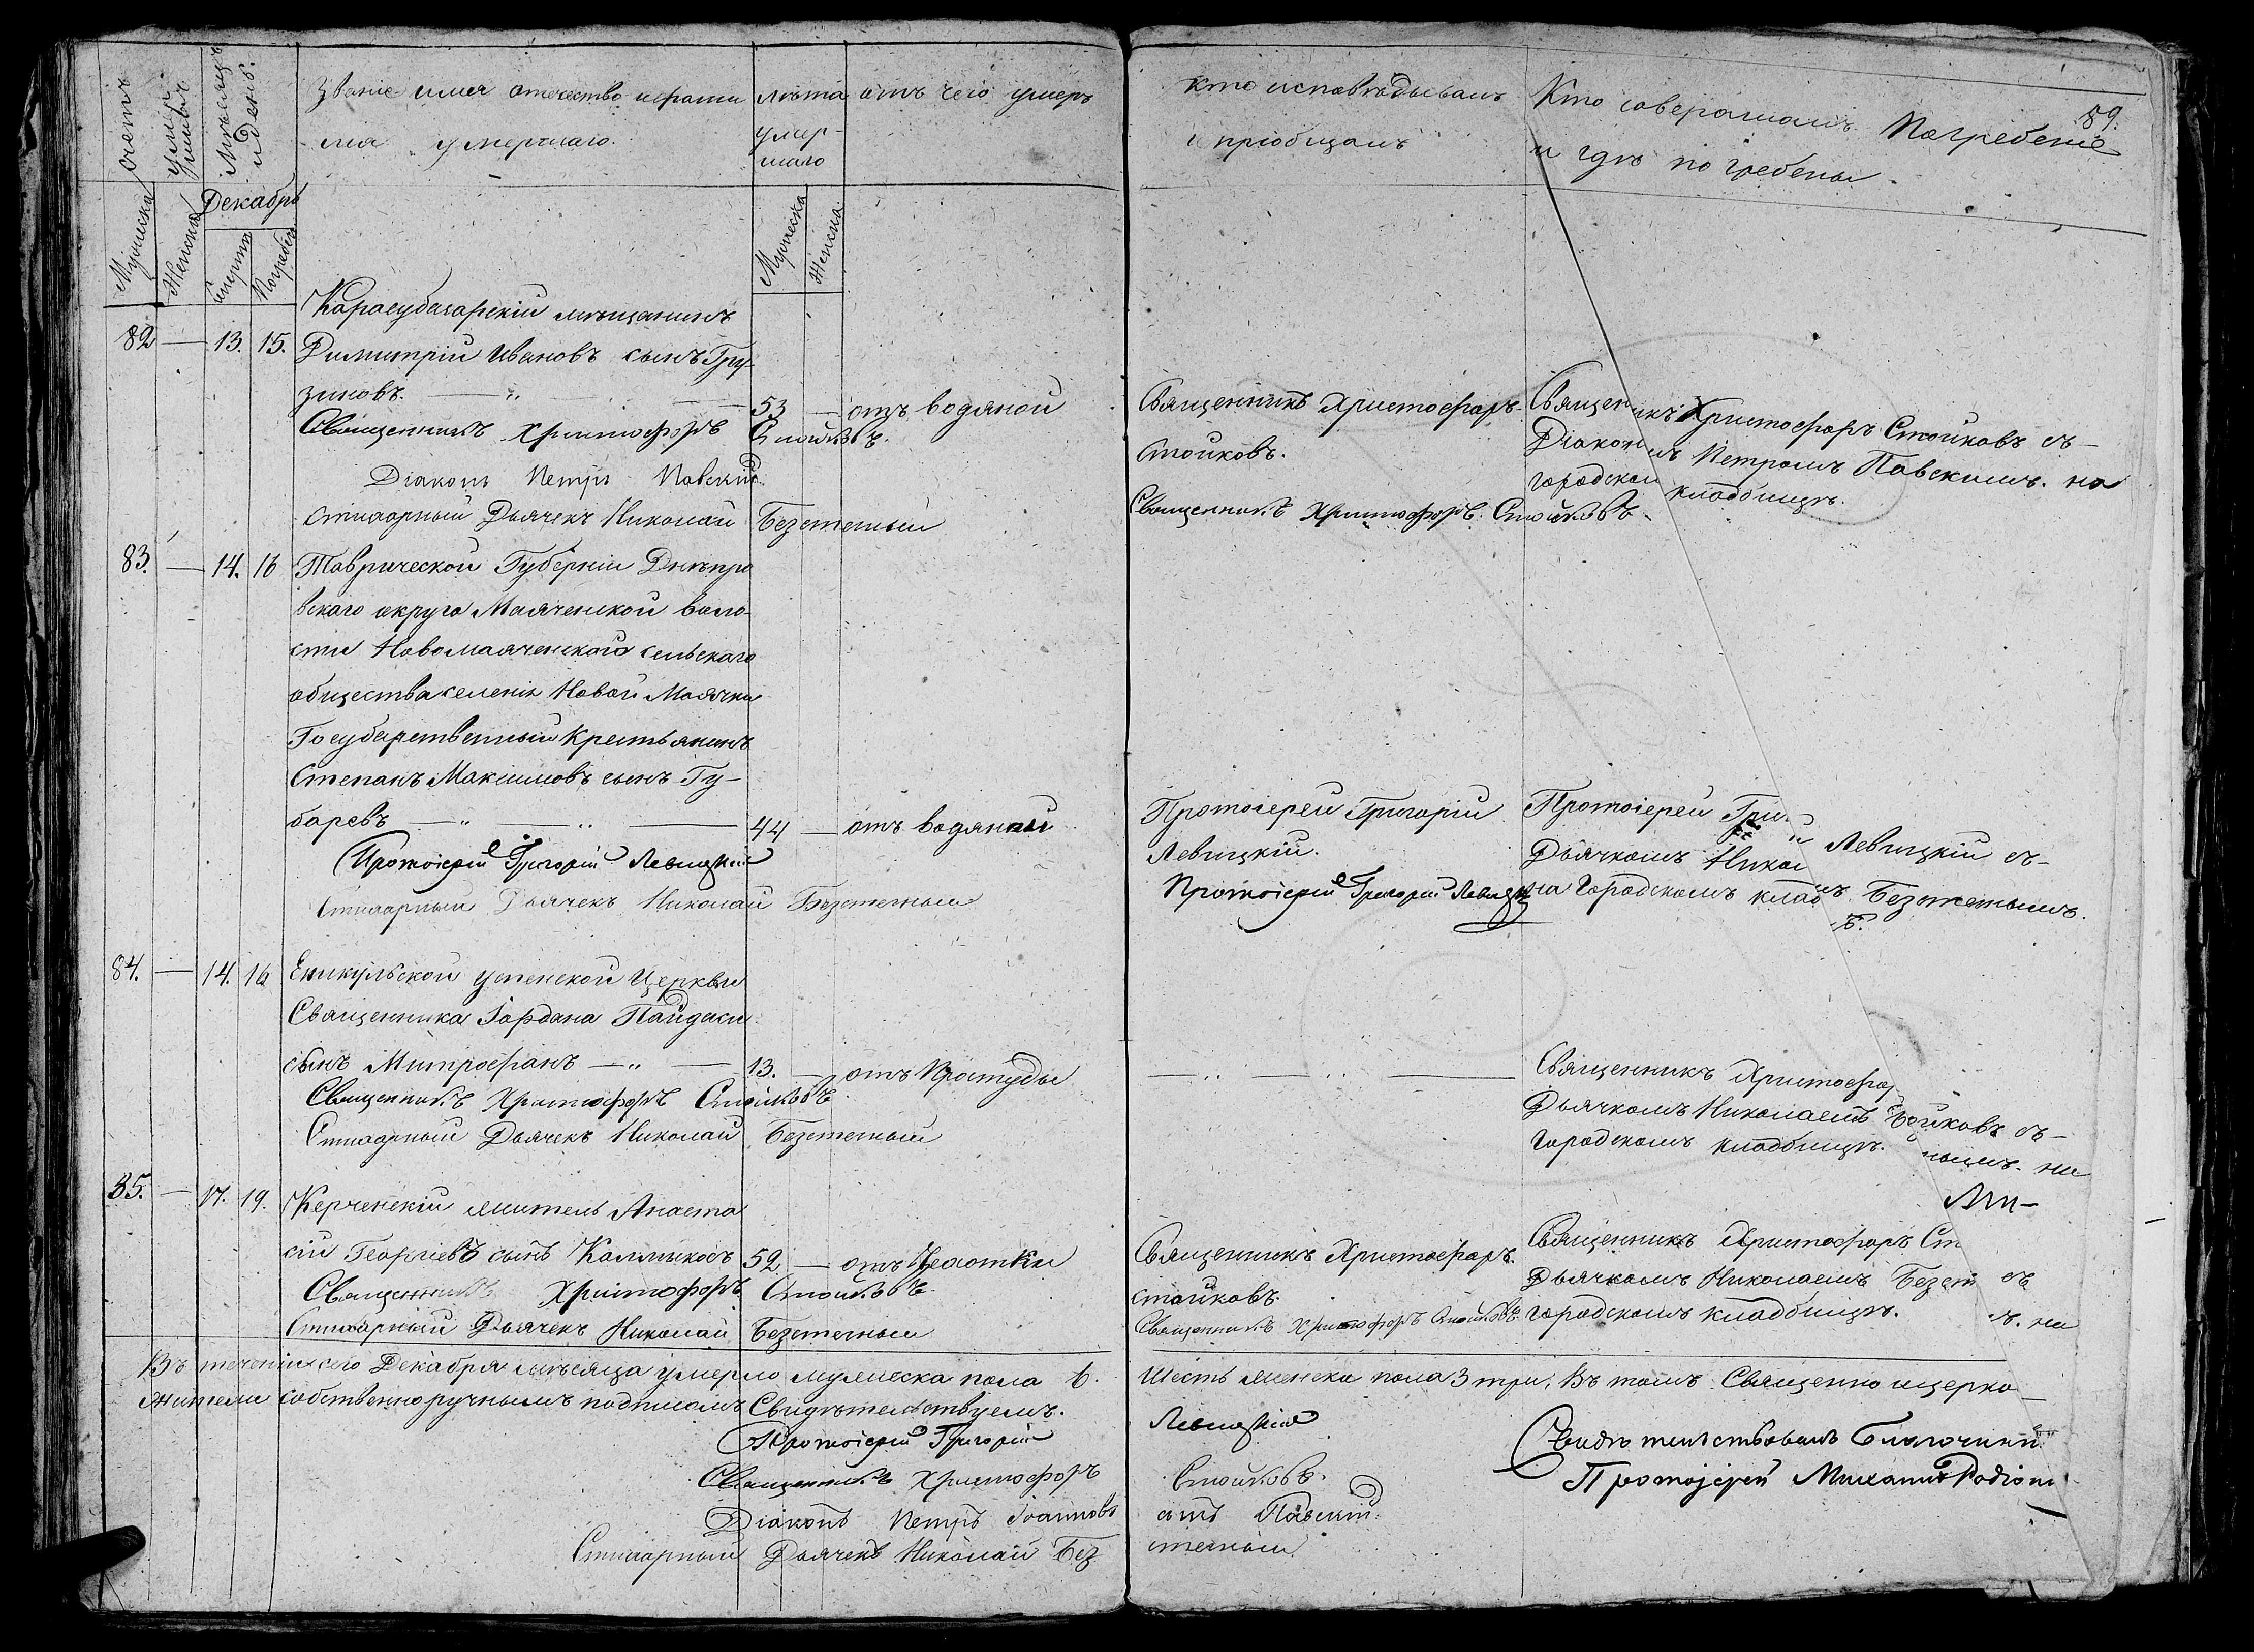 счетъ умершихъ
Мѣсяцъ и день.
Званіе имя отечество и фами
лия умершаго.
лѣта умер-
шаго
отъ чего умеръ
кто исповѣдывалъ
и пріобщалъ
Кто совершалъ Погребеніе
и гдѣ погребены
89.
Мужеска
Женска
Декабрь
Смерти
Погребе
Мужеска
Женска
Карасубазарскій мѣщанинъ
82 — 13. 15. Димитрій Ивановъ сынъ Гру-
зиновъ. 53 — отъ водяной
Священникъ Христофоръ Стойковъ.
Діаконъ Петръ Павскій
Стихарный Дьячекъ Николай Безотечный
Священникъ Христофоръ
Стойковъ.
Священникъ Христофоръ Стойковъ
Священникъ Христофоръ Стойковъ съ
Діакономъ Петромъ Павскимъ. на
городском кладбищѣ.
83. — 14. 16 Таврической Губерніи Днѣпро
вскаго округа Маяченской воло-
сти Новомаяченскаго сельскаго
общества селенія Новой Маячки
Государственный Крестьянинъ
Степанъ Максимовъ сынъ Гу-
баревъ 44 — отъ водяной
Протоіерей Григорій Левицкій
Стихарный Дьячекъ Николай Безотечный
Протоіерей Григорій
Левицкій.
Протоіерей Григорій Левицкій
Протоіерей Гри й Левицкій съ
Дьячкомъ Никол мъ Безотечнымъ.
на Городскомъ клад ѣ.
84. — 14. 16 Еникульской успенской Церкви
Священника Іордана Пайдаси
сынъ Митрофанъ 13. — отъ Простуды
Священникъ Христофоръ Стойковъ
Стихарный Дьячекъ Николай Безотечный
Священникъ Христофор тойковъ съ
Дьячкомъ Николаемъ Безо нымъ. на
Городскомъ кладбищѣ.
85. — 17. 19. Керченскій житель Анаста
сій Георгіевъ сынъ Калмыковъ 52 — отъ Чахотки
Священникъ Христофоръ Стойковъ.
Стихарный Дьячекъ Николай Безотечный
Священникъ Христофоръ
стойковъ.
Священникъ Христофоръ Стойковъ
Священникъ Христофоръ Ст съ
Дьячкомъ Николаемъ Безот ъ. на
городскомъ кладбищѣ.
Въ теченіи сего Декабря мѣсяца умерло мужеска пола 6. Шесть женска пола 3 три, Въ томъ Священно и церко
жители собственноручнымъ подписомъ Свидѣтельствуемъ.
Протоіерей Григорій Левицкій
Священникъ Христофоръ Стойковъ.
Діаконъ Петръ Іоанновъ сынъ Павскій.
Стихарный Дьячекъ Николай Безотечный
Свидѣтельствовалъ Благочинный
Протоіерей Михаилъ Родіон